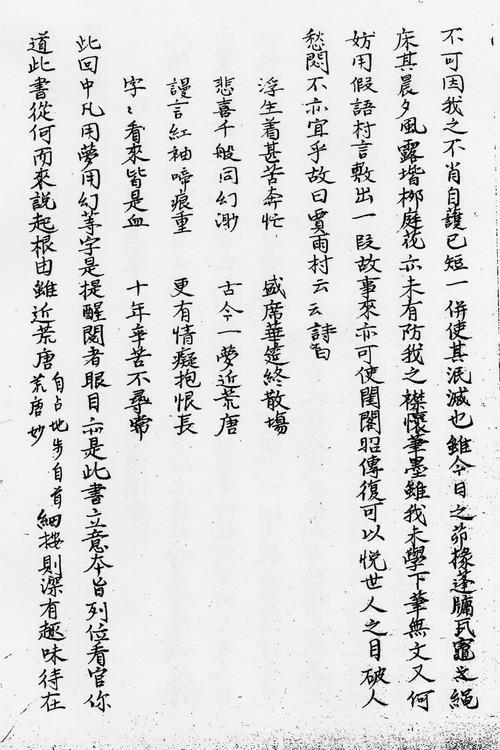 不可因我之不肖自護己短一併使其泯滅也雖今日之茆椽蓬牖瓦竈之繩
床其晨夕風露堦栁庭花亦未有防我之襟懷筆墨雖我未學下筆無文又何
妨用假語村言敷出一段故事來亦可使閨閣昭傳復可以悅世人之目破人
愁悶不亦宜乎故曰賈雨村云云詩曰
浮生着甚苦奔忙 盛席華筵終散場
悲喜千般同幻渺 古今一夢近荒唐
謾言紅袖啼痕重 更有情癡抱恨長
字〻看來皆是血 十年辛苦不尋常
此回中凡用夢用幻等字是提醒閱者眼目亦是此書立意本旨列位看官你
道此書從何而來說起根由雖近荒唐自占地步自首荒唐妙細按則深有趣味待在